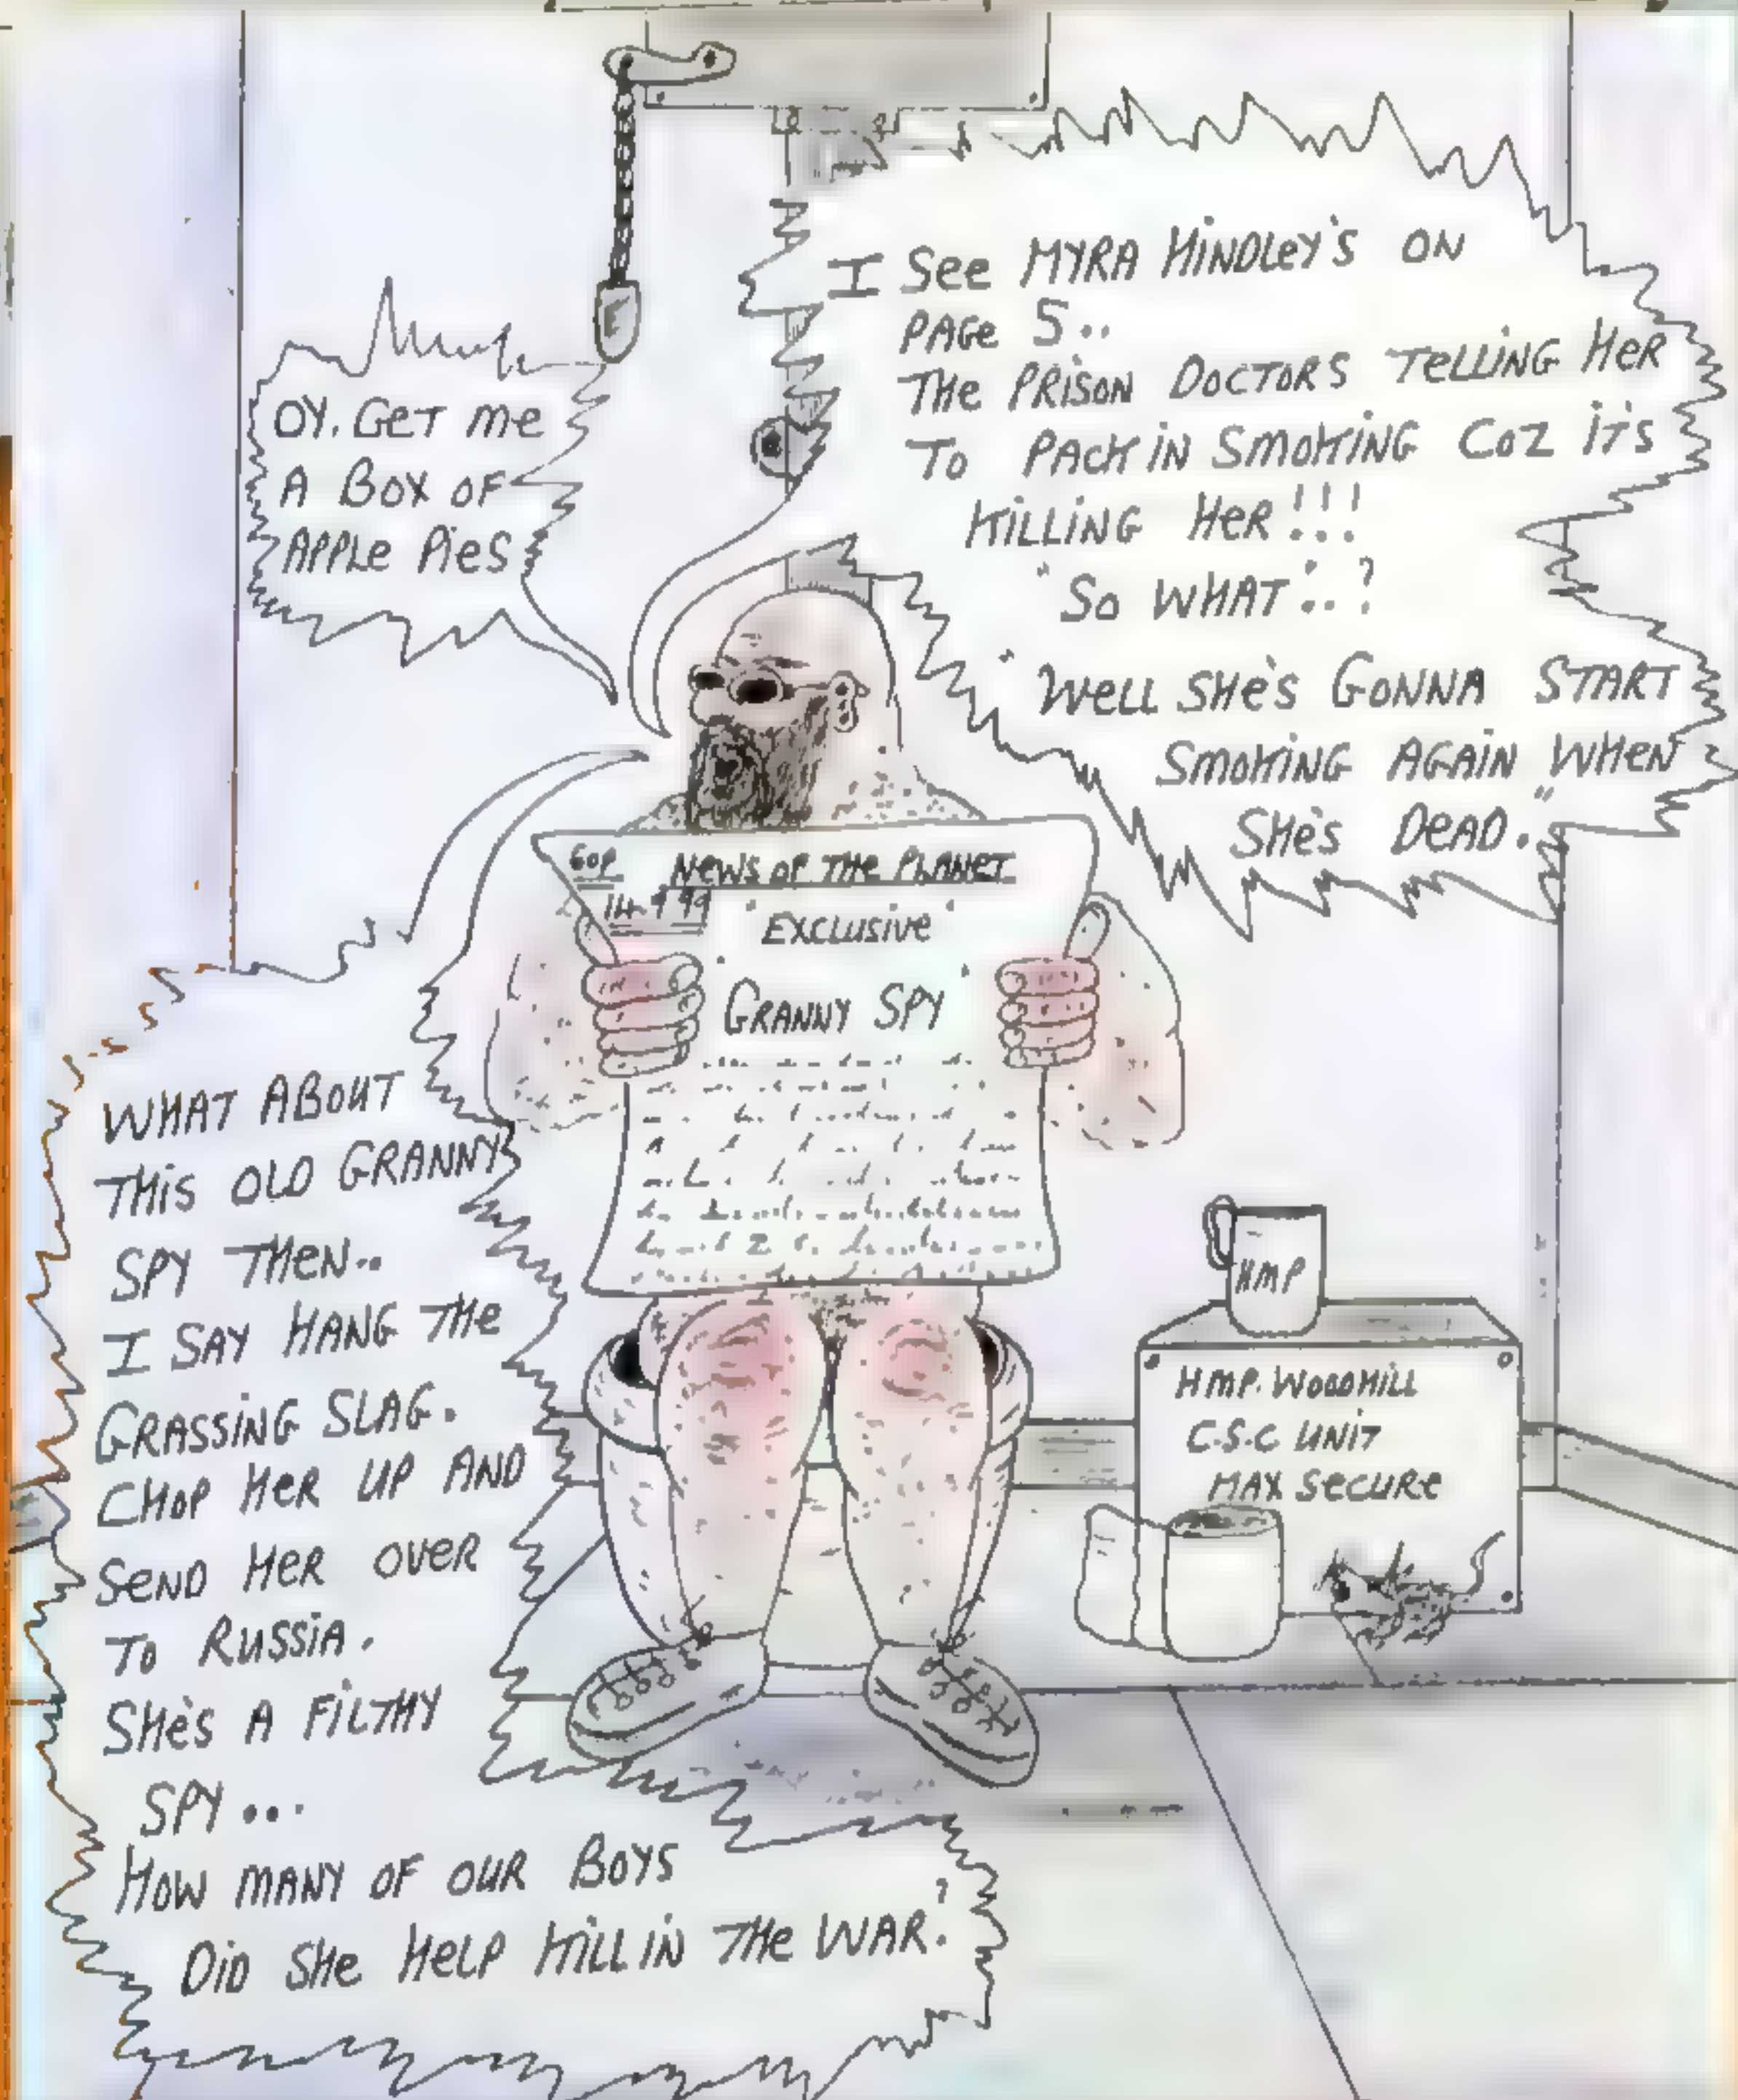 OY. GET ME
A BOX OF
APPLE PiES
I See MYRA HiNDLeY'S ON
PAGe 5..
THe PRiSON DOCTORS TeLLiNG HeR
To PACK iN SMOKiNG COZ iT'S
KiLLiNG HeR!!!
"SO WHAT"..?
"WeLL SHe'S GONNA START
SMOKiNG AGAiN WHeN
SHe'S DeAD."
60P NeWS OF THe PLANeT
14.9.99
'EXCLUSiVe'
'GRANNY SPY'
WHAT ABOUT
THiS OLD GRANNY
SPY THeN..
I SAY HANG THe
GRASSiNG SLAG.
CHOP HeR UP AND
SeND HeR OVeR
To RuSSiA.
SHe'S A FiLTHY
SPY...
HOW MANY OF OUR BOYS
DiD SHe HeLP KiLL iN THe WAR?
HMP
HMP. WOODHiLL
C.S.C UNiT
MAX SeCURe